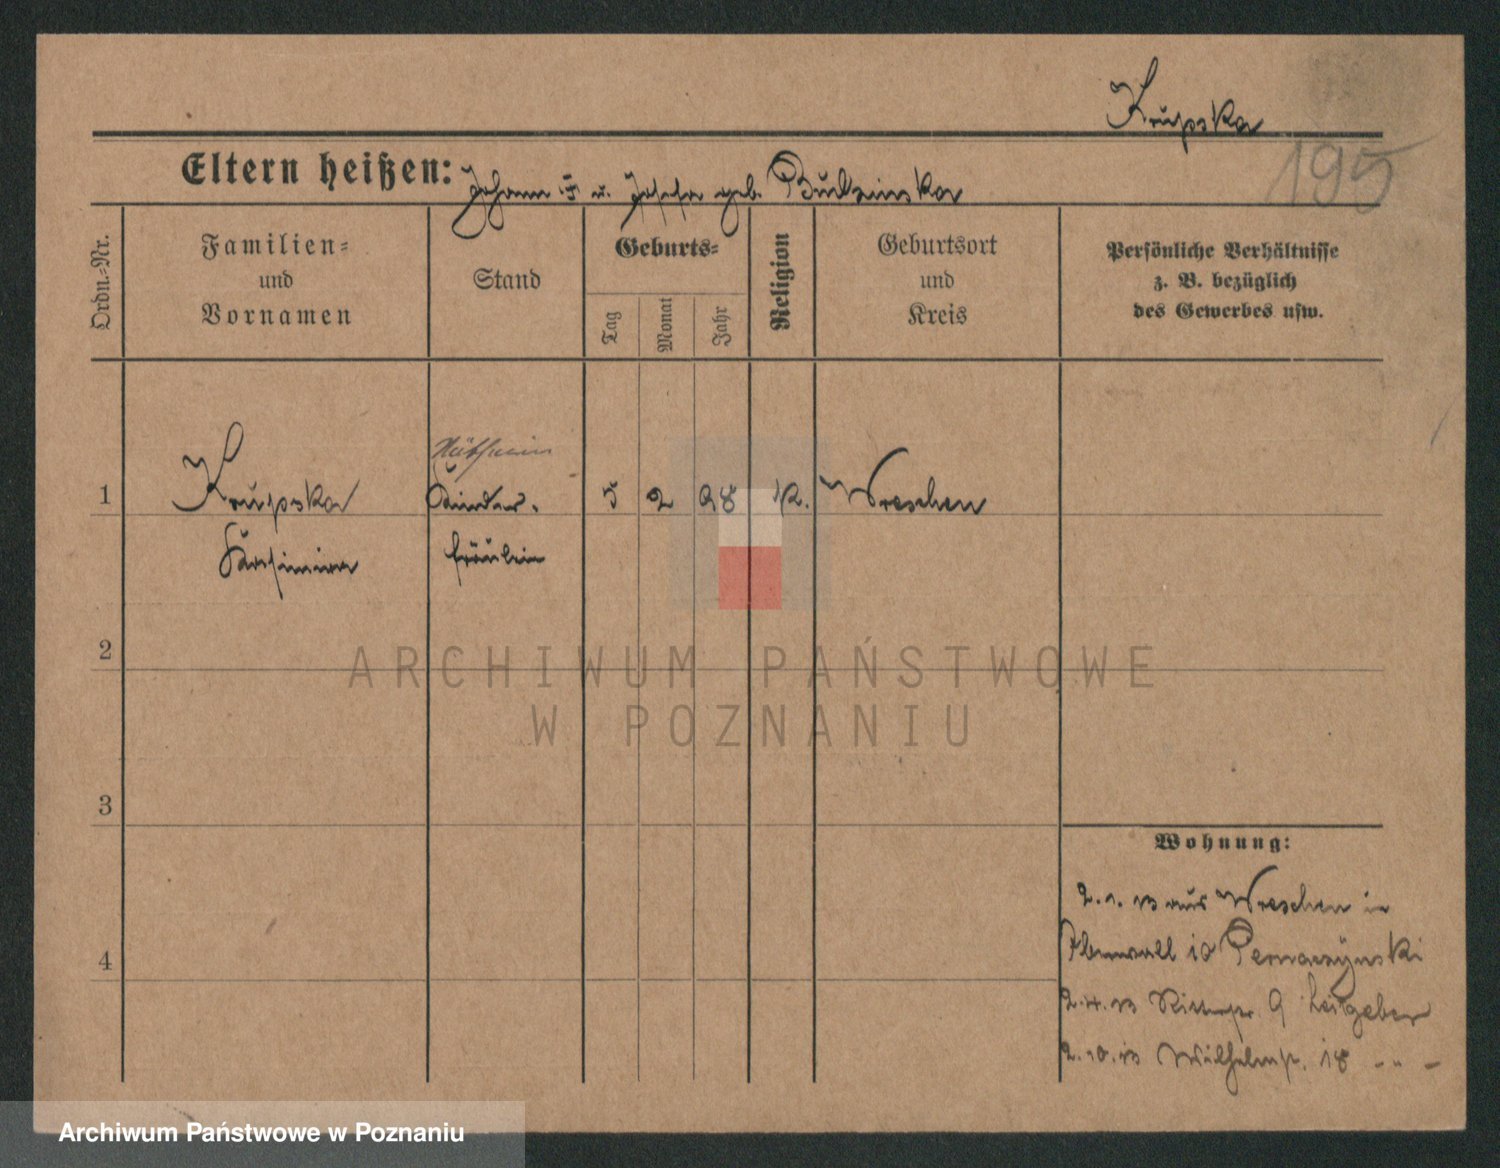 Krupska
195
Eltern heißen: Johann † u. Josefa geb. Budzinska
Ordn.-Nr.
Familien-
und
Vornamen
Stand
Geburts-
Tag
Monat
Jahr
Religion
Geburtsort
und
Kreis
Persönliche Verhältnisse
z. B. bezüglich
des Gewerbes usw.
1
Krupska
Kasimira
Kinder-
fräulein
5 2 98 k. Wreschen
2
3
4
ARCHIWUM PAŃSTWOWE
W POZNANIU
Wohnung:
2.1.13 aus Wreschen in
10
2.4.13 Ritterstr. 9 Leitgeber
2.10.13 Wilhelmstr. 18 " "
Archiwum Państwowe w Poznaniu